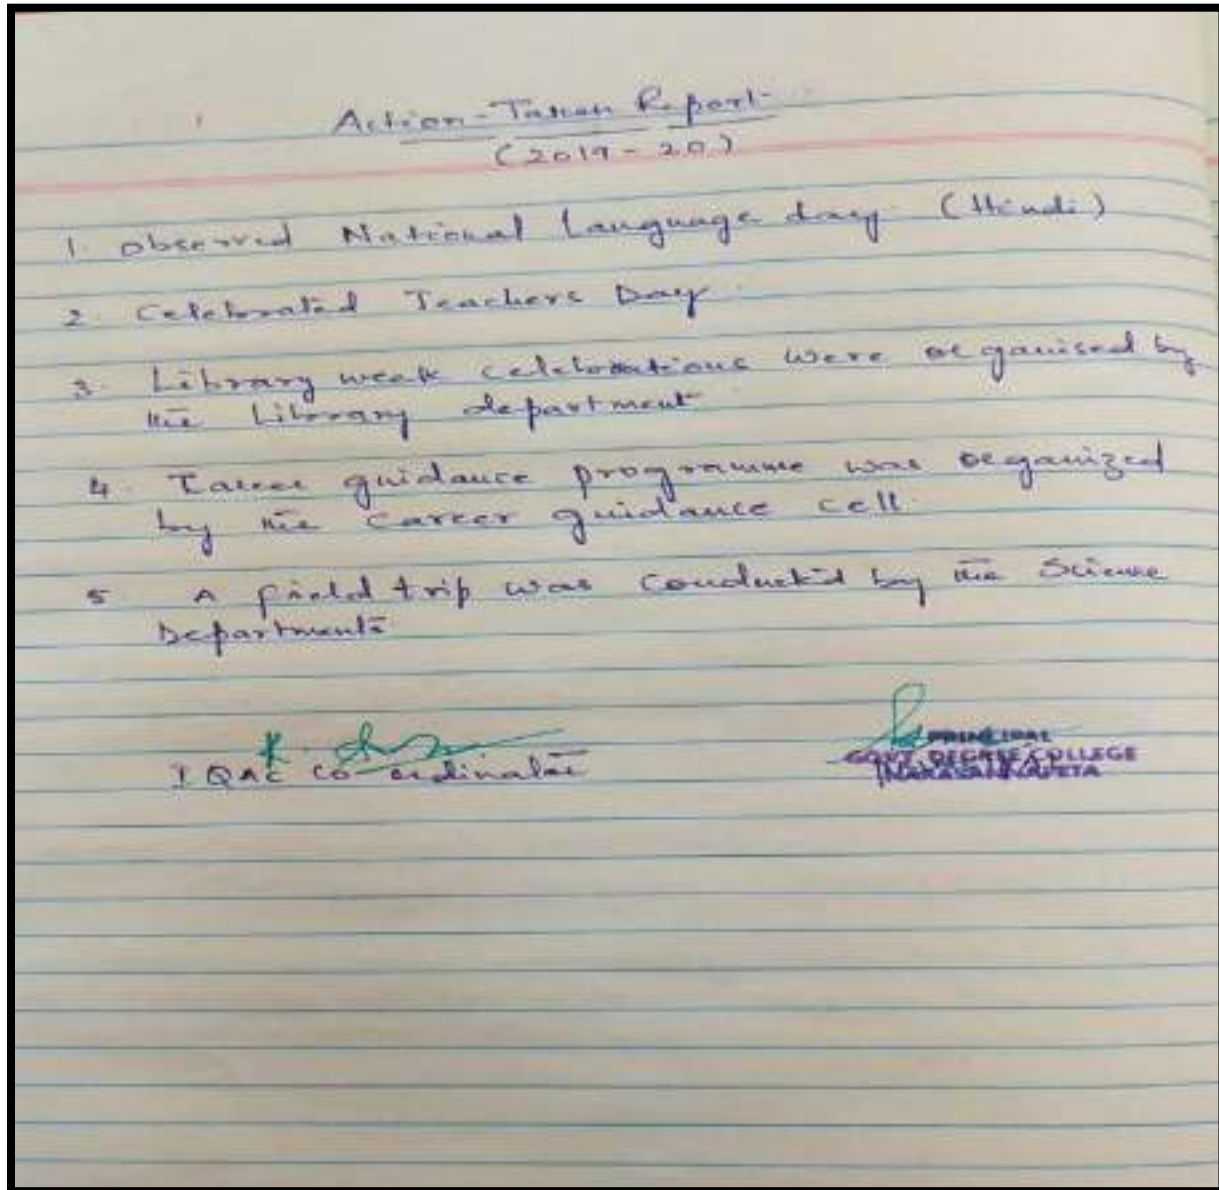 Action-Taken Report
(2019-20)
1. observed National Language day (Hindi)
2. Celebrated Teachers Day.
3. Library week celebrations were organised by
the Library department
4. Career guidance programme was organized
by the career guidance cell.
5 A field trip was conducted by the Science
Departments
IQAC co-ordinator
PRINCIPAL
GOVT. DEGREE COLLEGE
NARASANNAPETA